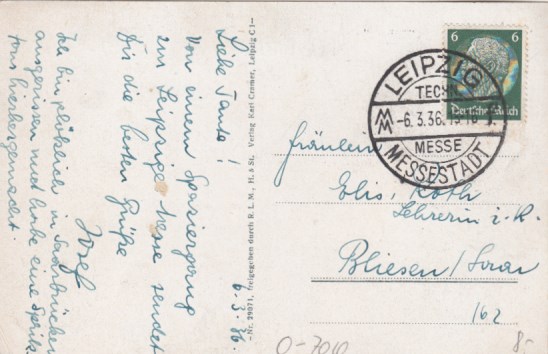 6. 3. 36.
Liebe Tante!
Von einem Spaziergang
zur Leipziger Messe sendet
Dir die besten Grüße
Josef
Ich bin plötzlich in Saarbrücken
ausgerissen und habe eine
hierhergemacht.
Nr. 29071, freigegeben durch R.L.M., H. & St. Verlag Karl Cramer, Leipzig C 1
6 6
Deutsches Reich
LEIPZIG
TECHN.
MM -6.3.36
MESSE
MESSESTADT
Fräulein
Elis. Koth
Lehrerin i. R.
Bliesen/Saar
162
0-7010
8.-